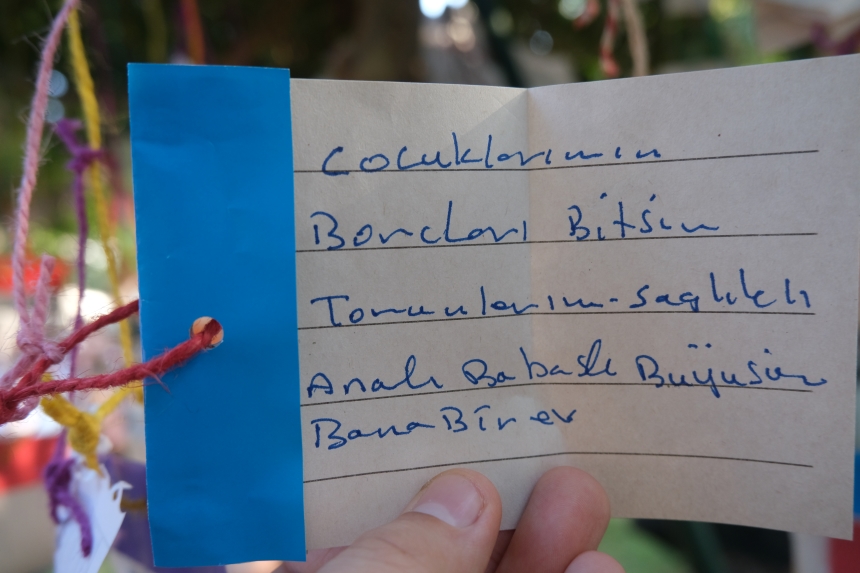 Cocuklarımın
Borcları Bitsin
Torunlarım-saglıklı
Analı Babalı Büyüsün
Bana Bir ev